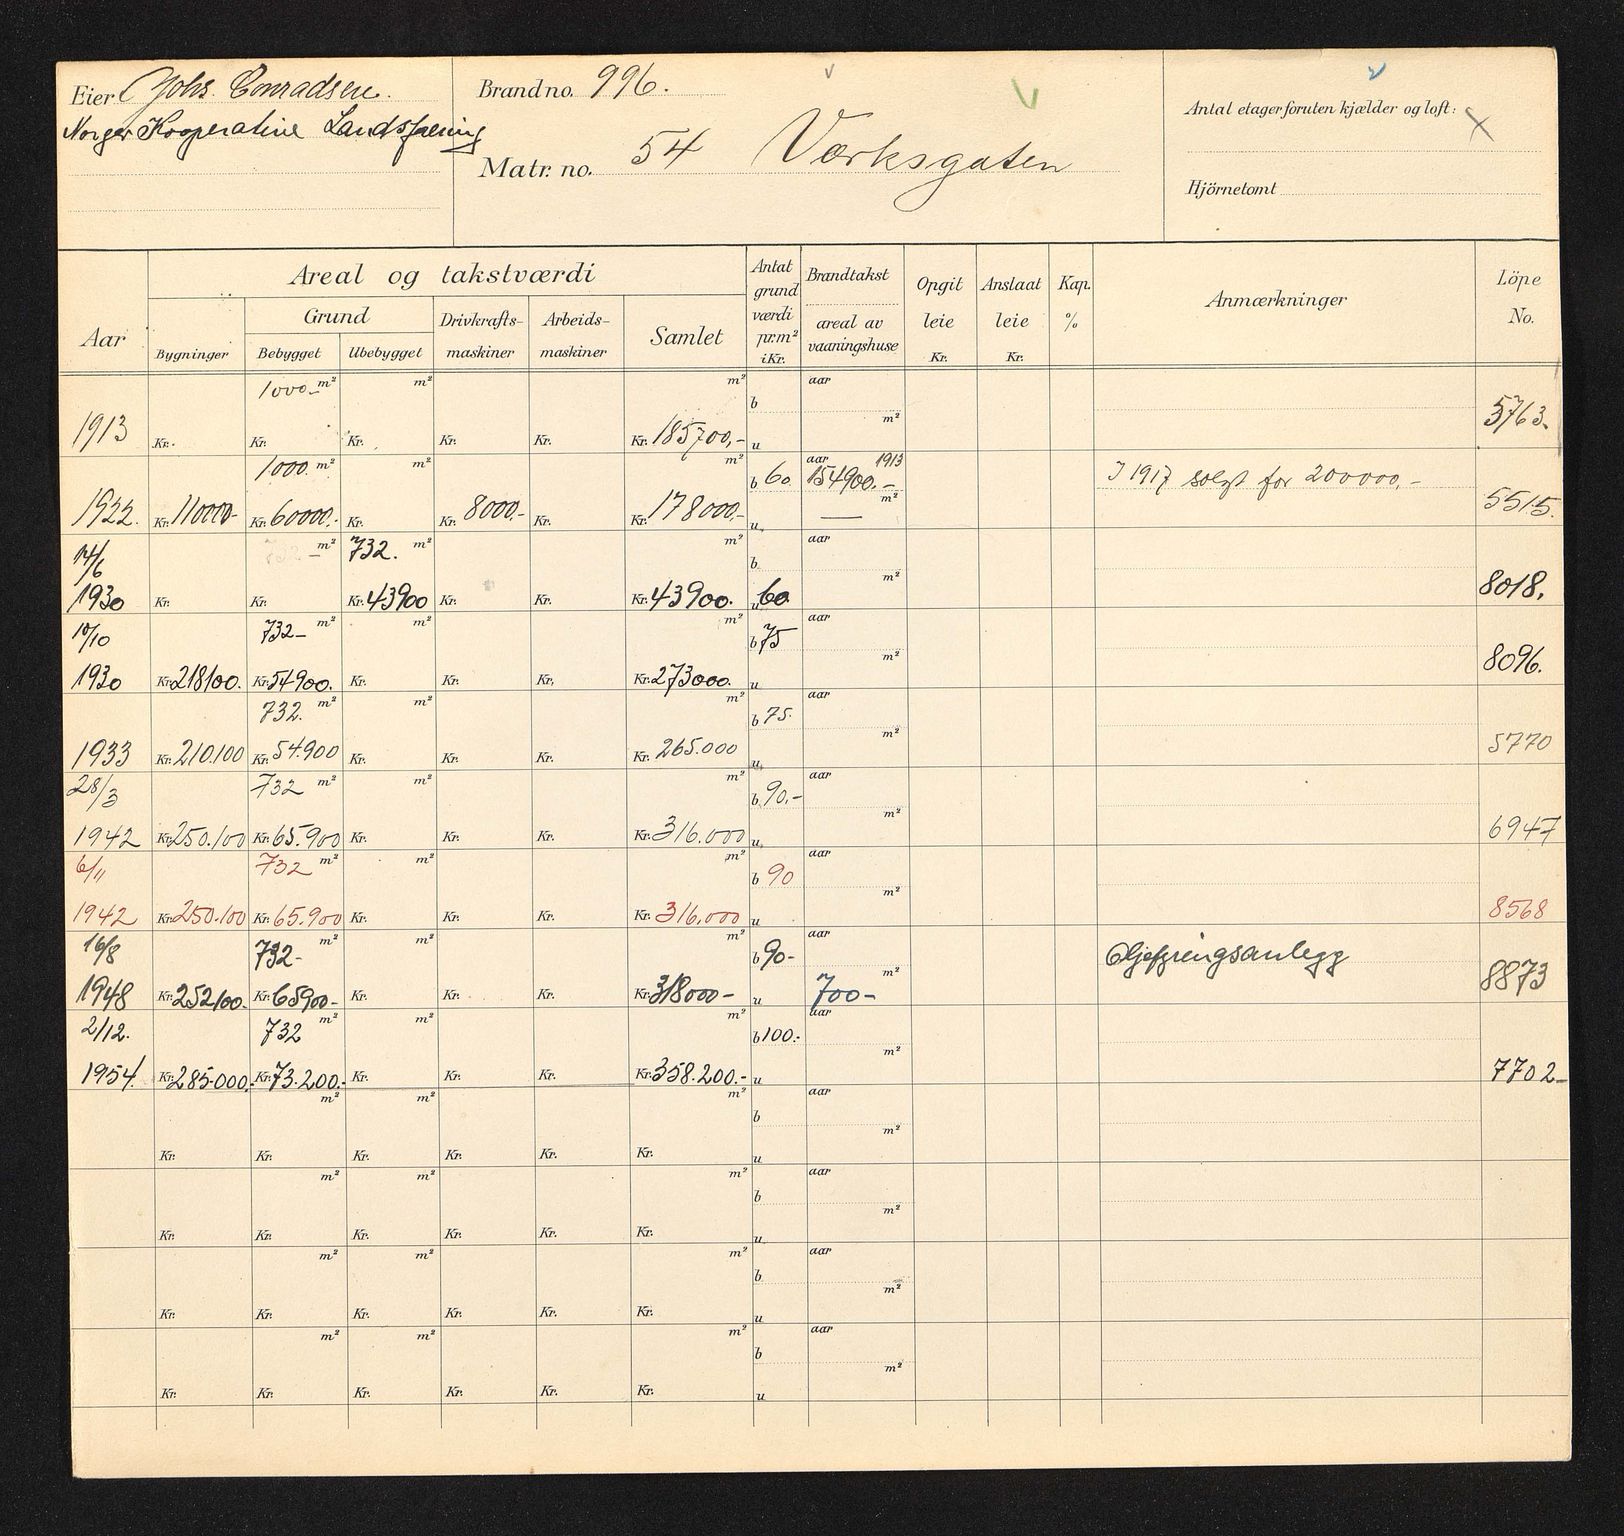 Eier Johs. Conradsen.
Norges Kooperative Landsforening
Brand no. 996.
Matr. no. 54 Værksgaten
Antal etager foruten kjælder og loft:
Hjörnetomt
Aar
Areal og takstværdi
Bygninger
Grund
Bebygget Ubebygget
Drivkrafts-maskiner
Arbeids-maskiner
Samlet
Antat grund værdi pr. m² i Kr.
Brandtakst
areal av vaaningshuse
Opgit leie Kr.
Anslaat leie Kr.
Kap. %
Anmærkninger
Löpe No.
1000.- m² m² m² aar
b
m²
1913 Kr. Kr. Kr. Kr. Kr. Kr. 185700,- u 5763.
1000. m² m² m² b 60. aar 1913 154900.- I 1917 solgt for 200000,-
m²
1922. Kr. 110000- Kr. 60000,- Kr. Kr. 8000,- Kr. Kr. 178000,- u — 5515.
14/6 732 - m² 732. m² m² b aar
m²
1930 Kr. Kr. Kr. 43900 Kr. Kr. Kr. 43900. u 60. 8018.
10/10 732- m² m² m² b 75 aar
m²
1930 Kr. 218100. Kr. 54900. Kr. Kr. Kr. Kr. 273000. u 8096.
732. m² m² m² b 75. aar
m²
1933 Kr. 210.100 Kr. 54.900 Kr. Kr. Kr. Kr. 265.000 u 5770
28/3 732 m² m² m² b 90.- aar
m²
1942 Kr. 250.100 Kr. 65.900 Kr. Kr. Kr. Kr. 316.000 u 6947
6/11 732 m² m² m² b 90 aar
m²
1942 Kr. 250.100 Kr. 65.900 Kr. Kr. Kr. Kr. 316.000 u 8568
16/8 732- m² m² m² b 90- aar Oljefyringsanlegg
m²
1948 Kr. 252100.- Kr. 65900- Kr. Kr. Kr. Kr. 318000- u 700- 8873
2/12. 732 m² m² m² b 100.- aar
m²
1954. Kr. 285.000.- Kr. 73.200.- Kr. Kr. Kr. Kr. 358.200.- u 7702-
m² m² m² aar
b
m²
Kr. Kr. Kr. Kr. Kr. Kr. u
m² m² m² aar
b
m²
Kr. Kr. Kr. Kr. Kr. Kr. u
m² m² m² aar
b
m²
Kr. Kr. Kr. Kr. Kr. Kr. u
m² m² m² aar
b
m²
Kr. Kr. Kr. Kr. Kr. Kr. u